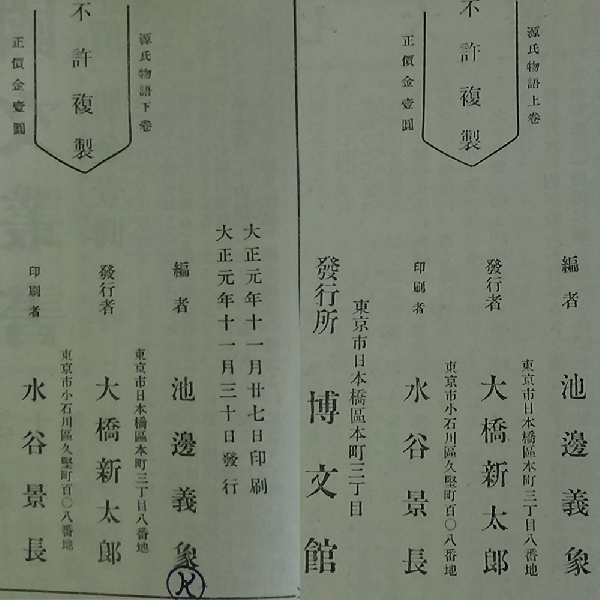 源氏物語上卷
不許複製
正價金壹圓
編者 池邊義象
東京市日本橋區本町三丁目八番地
發行者 大橋新太郎
東京市小石川區久堅町百〇八番地
印刷者 水谷景長
東京市日本橋區本町三丁目
發行所 博文館
源氏物語下卷
不許複製
正價金壹圓
大正元年十一月廿七日印刷
大正元年十一月三十日發行
編者 池邊義象
東京市日本橋區本町三丁目八番地
發行者 大橋新太郎
東京市小石川區久堅町百〇八番地
印刷者 水谷景長
K